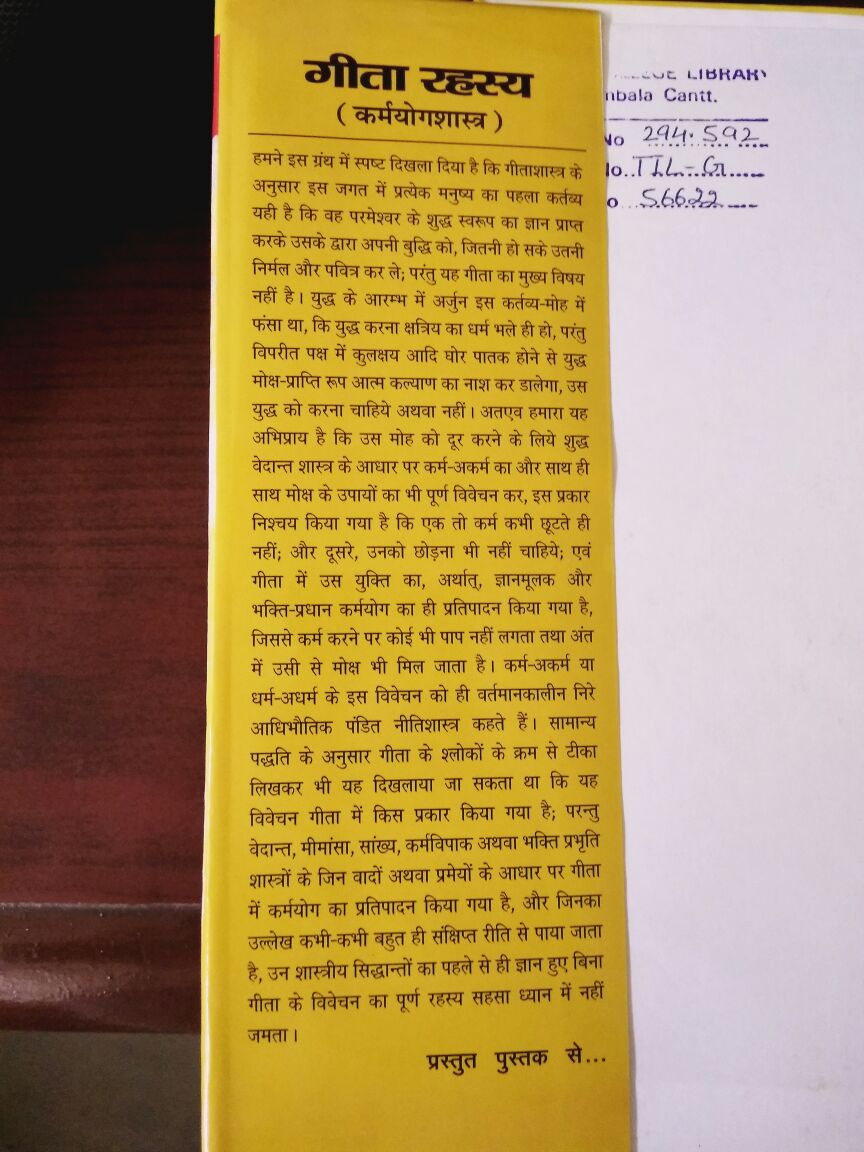 गीता रहस्य
( कर्मयोगशास्त्र )
हमने इस ग्रंथ में स्पष्ट दिखला दिया है कि गीताशास्त्र के
अनुसार इस जगत में प्रत्येक मनुष्य का पहला कर्तव्य
यही है कि वह परमेश्वर के शुद्ध स्वरूप का ज्ञान प्राप्त
करके उसके द्वारा अपनी बुद्धि को, जितनी हो सके उतनी
निर्मल और पवित्र कर ले; परंतु यह गीता का मुख्य विषय
नहीं है। युद्ध के आरम्भ में अर्जुन इस कर्तव्य-मोह में
फंसा था, कि युद्ध करना क्षत्रिय का धर्म भले ही हो, परंतु
विपरीत पक्ष में कुलक्षय आदि घोर पातक होने से युद्ध
मोक्ष-प्राप्ति रूप आत्म कल्याण का नाश कर डालेगा, उस
युद्ध को करना चाहिये अथवा नहीं। अतएव हमारा यह
अभिप्राय है कि उस मोह को दूर करने के लिये शुद्ध
वेदान्त शास्त्र के आधार पर कर्म-अकर्म का और साथ ही
साथ मोक्ष के उपायों का भी पूर्ण विवेचन कर, इस प्रकार
निश्चय किया गया है कि एक तो कर्म कभी छूटते ही
नहीं; और दूसरे, उनको छोड़ना भी नहीं चाहिये; एवं
गीता में उस युक्ति का, अर्थात्, ज्ञानमूलक और
भक्ति-प्रधान कर्मयोग का ही प्रतिपादन किया गया है,
जिससे कर्म करने पर कोई भी पाप नहीं लगता तथा अंत
में उसी से मोक्ष भी मिल जाता है। कर्म-अकर्म या
धर्म-अधर्म के इस विवेचन को ही वर्तमानकालीन निरे
आधिभौतिक पंडित नीतिशास्त्र कहते हैं। सामान्य
पद्धति के अनुसार गीता के श्लोकों के क्रम से टीका
लिखकर भी यह दिखलाया जा सकता था कि यह
विवेचन गीता में किस प्रकार किया गया है; परन्तु
वेदान्त, मीमांसा, सांख्य, कर्मविपाक अथवा भक्ति प्रभृति
शास्त्रों के जिन वादों अथवा प्रमेयों के आधार पर गीता
में कर्मयोग का प्रतिपादन किया गया है, और जिनका
उल्लेख कभी-कभी बहुत ही संक्षिप्त रीति से पाया जाता
है, उन शास्त्रीय सिद्धान्तों का पहले से ही ज्ञान हुए बिना
गीता के विवेचन का पूर्ण रहस्य सहसा ध्यान में नहीं
जमता।
प्रस्तुत पुस्तक से...
LIBRARY
Cantt.
No 294.592
TIL-G
56622